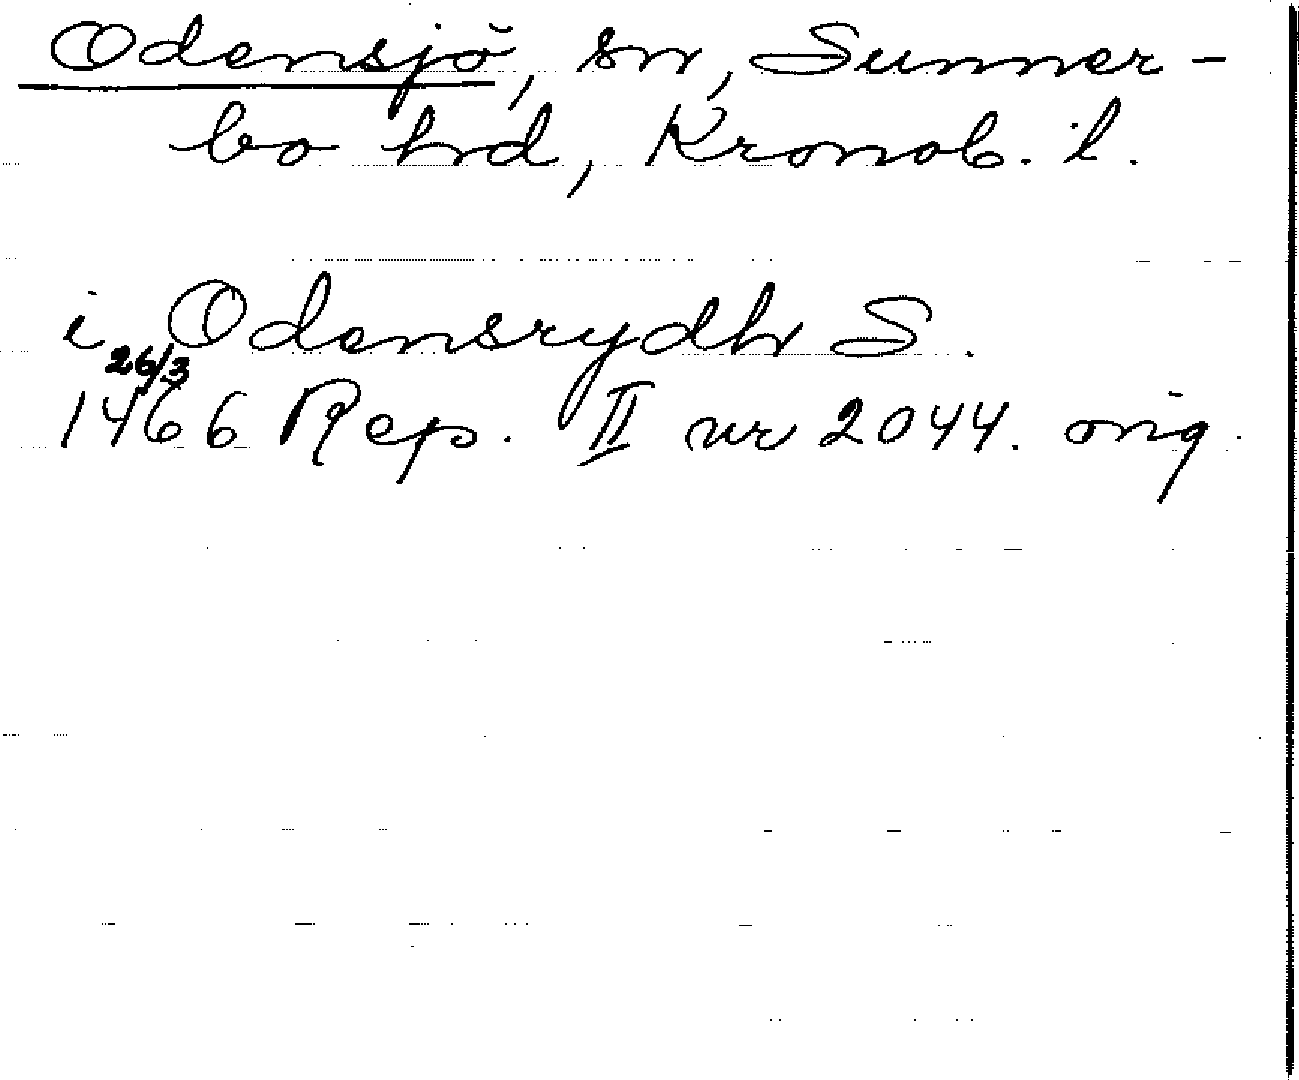 Odensjö, sn, Sunner-
bo hrd, Kronob. l.
i Odensrydh S.
26/3
1466 Rep. II nr 2044. orig.